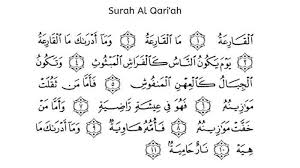 Surah Al Qari'ah
ٱلْقَارِعَةُ ۝١ مَا ٱلْقَارِعَةُ ۝٢ وَمَآ أَدْرَىٰكَ مَا ٱلْقَارِعَةُ
۝٣ يَوْمَ يَكُونُ ٱلنَّاسُ كَٱلْفَرَاشِ ٱلْمَبْثُوثِ ۝٤ وَتَكُونُ
ٱلْجِبَالُ كَٱلْعِهْنِ ٱلْمَنفُوشِ ۝٥ فَأَمَّا مَن ثَقُلَتْ
مَوَٰزِينُهُۥ ۝٦ فَهُوَ فِى عِيشَةٍ رَّاضِيَةٍ ۝٧ وَأَمَّا مَنْ
خَفَّتْ مَوَٰزِينُهُۥ ۝٨ فَأُمُّهُۥ هَاوِيَةٌ ۝٩ وَمَآ أَدْرَىٰكَ مَا
هِيَهْ ۝١٠ نَارٌ حَامِيَةٌۢ ۝١١